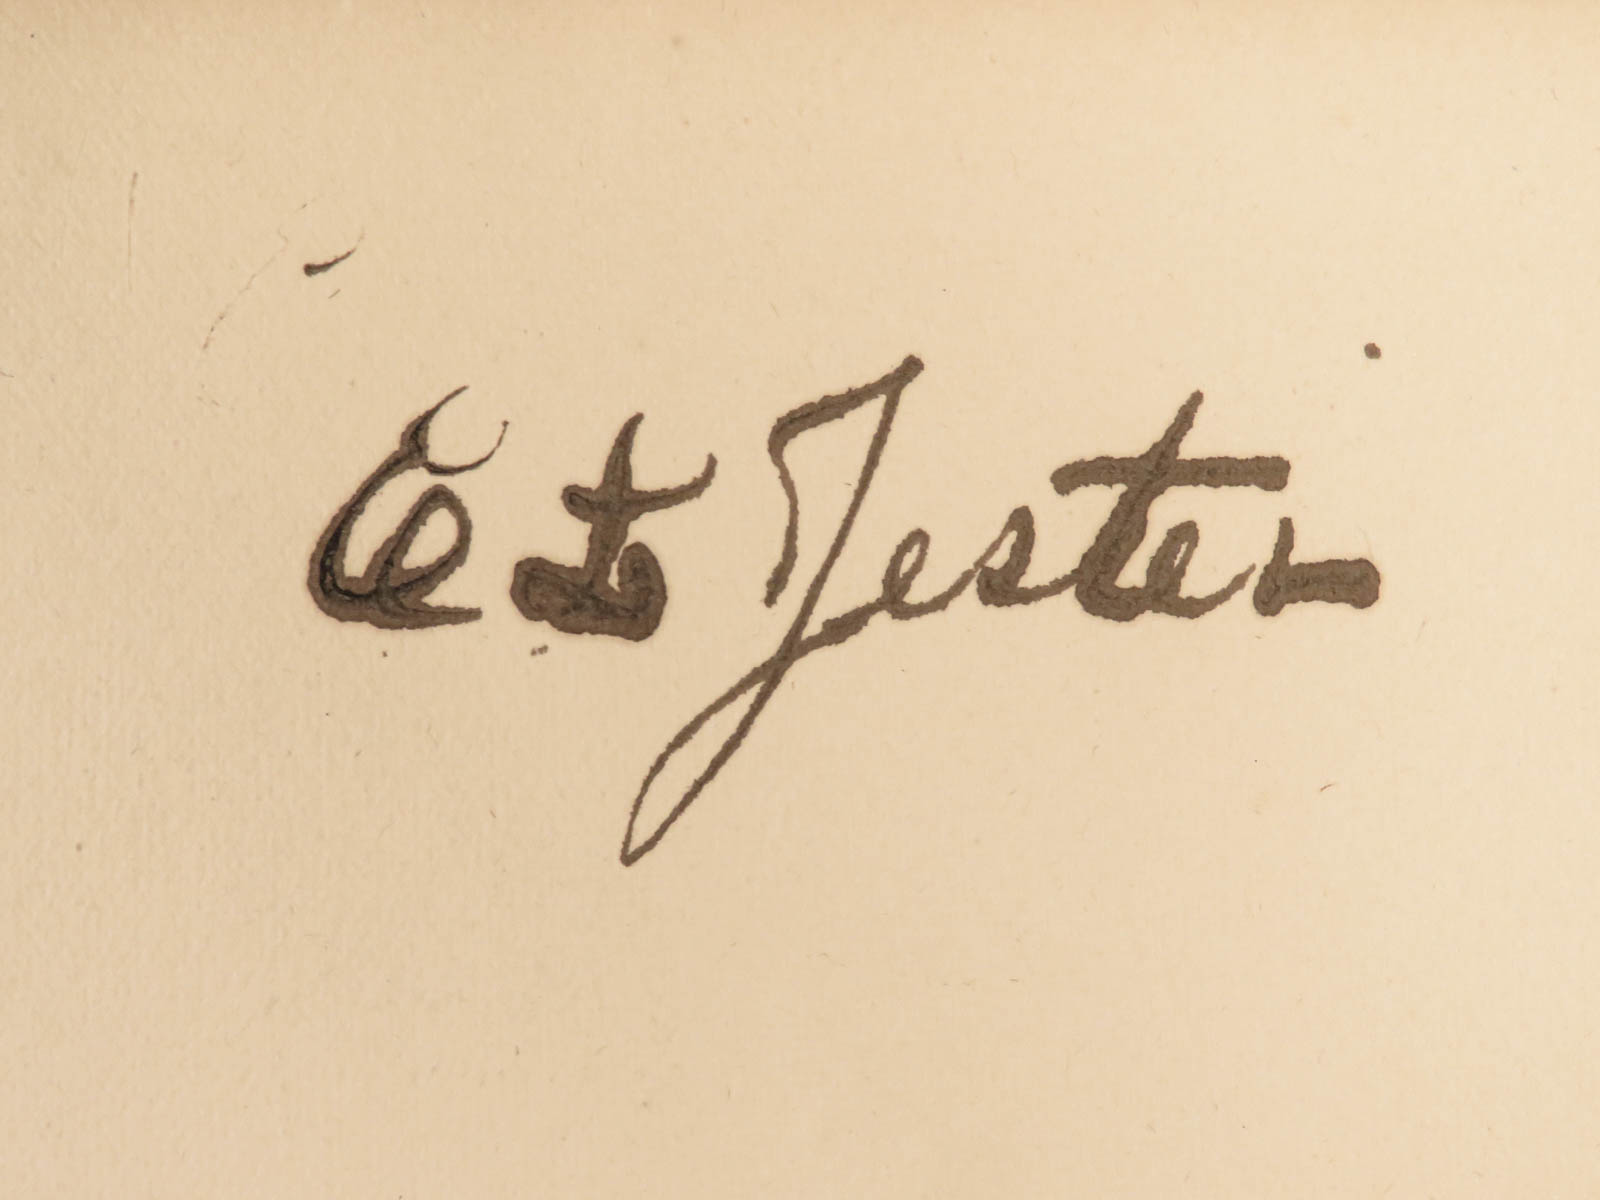 E L Jester